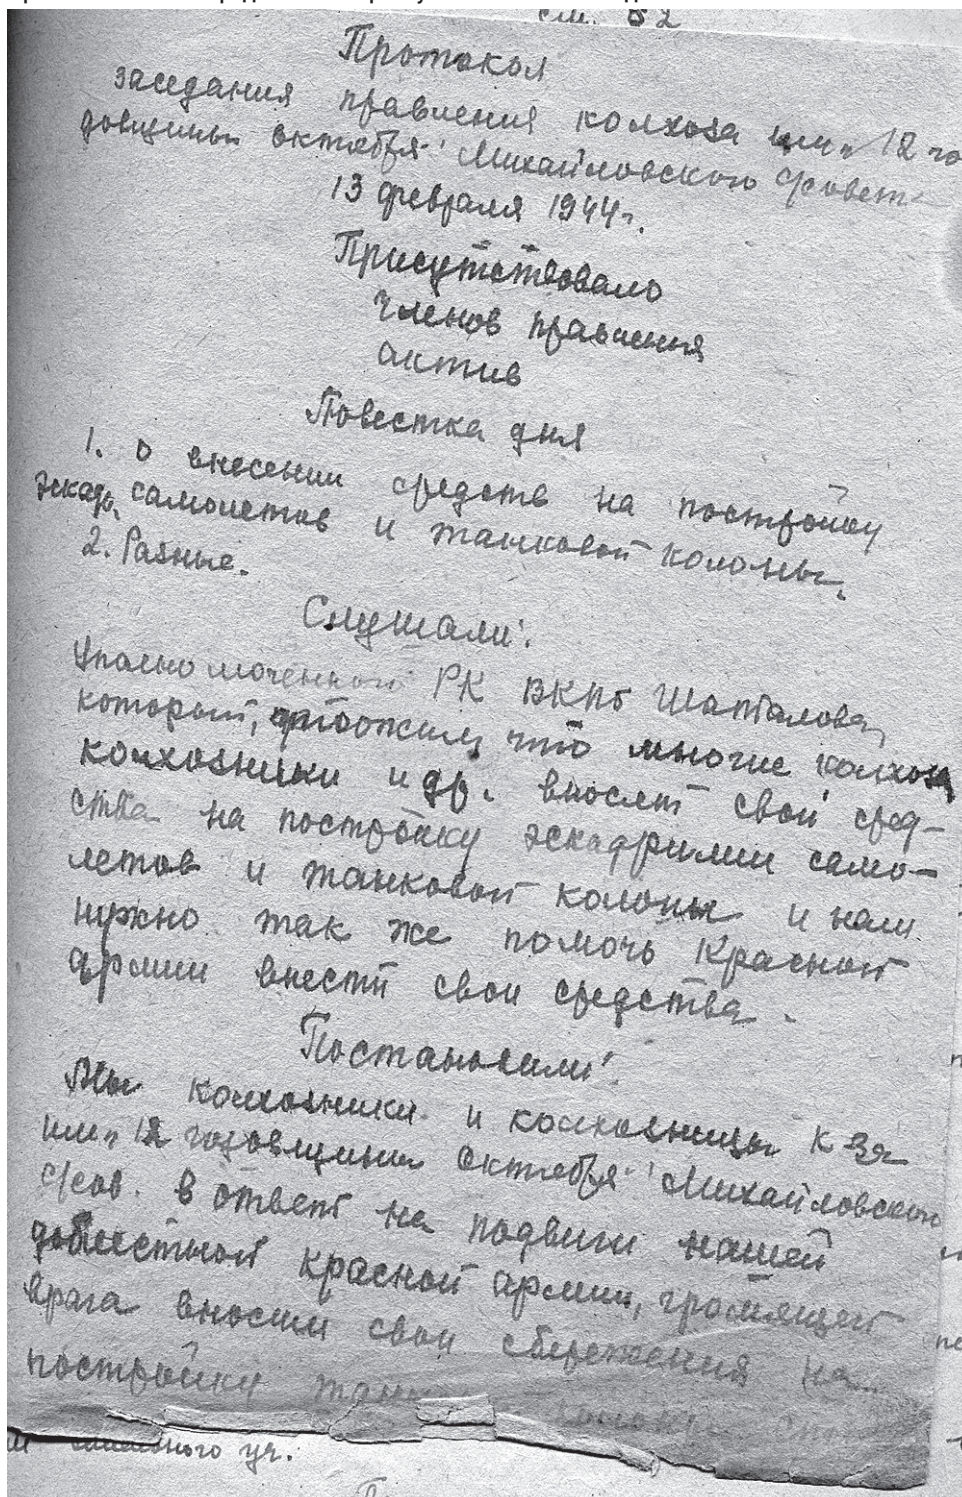 см. 52
Протокол
заседания правления колхоза им. "12 го
довщины октября" Михайловского с/совет
13 февраля 1944 г.
Присутствовало
членов правления
актив
Повестка дня
1. О внесении средств на постройку
эскадр. самолетов и танковой колоны.
2. Разные.
Слушали:
Уполномоченного РК ВКПб Шапталова,
который, что многие колхозы
колхозники и др. вносят свои сред-
ства на постройку эскадрилии само-
летов и танковой колоны и нам
нужно так же помочь Красной
армии внести свои средства.
Постановили:
Мы колхозники и колхозницы к-за
им. "12 годовщины Октября" Михайловского
с/сов. в ответ на подвиги нашей
доблестной красной армии, громящей
врага вносим свои сбережения на
постройку
уч.